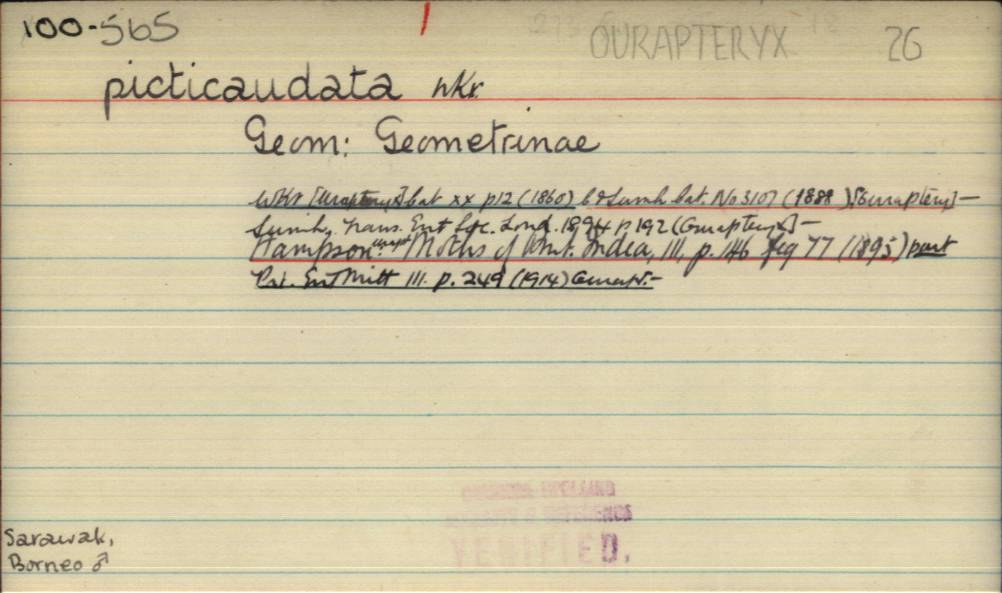 100-565 OURAPTERYX 26
picticaudata Wkr.
Geom: Geometrinae
Wkr [Urapteryx] Cat xx p12 (1860) C & Swinh Cat. No 3107 (1888) [Ourapteryx] —
Swinh, Trans. Ent Soc. Lond. 1894 p 192 (Ourapteryx) —
Hampson Moths of Brit. India, III, p. 146 fig 77 (1895) part
Ent Mitt III. p. 249 (1914)
VERIFIED.
Sarawak,
Borneo ♂